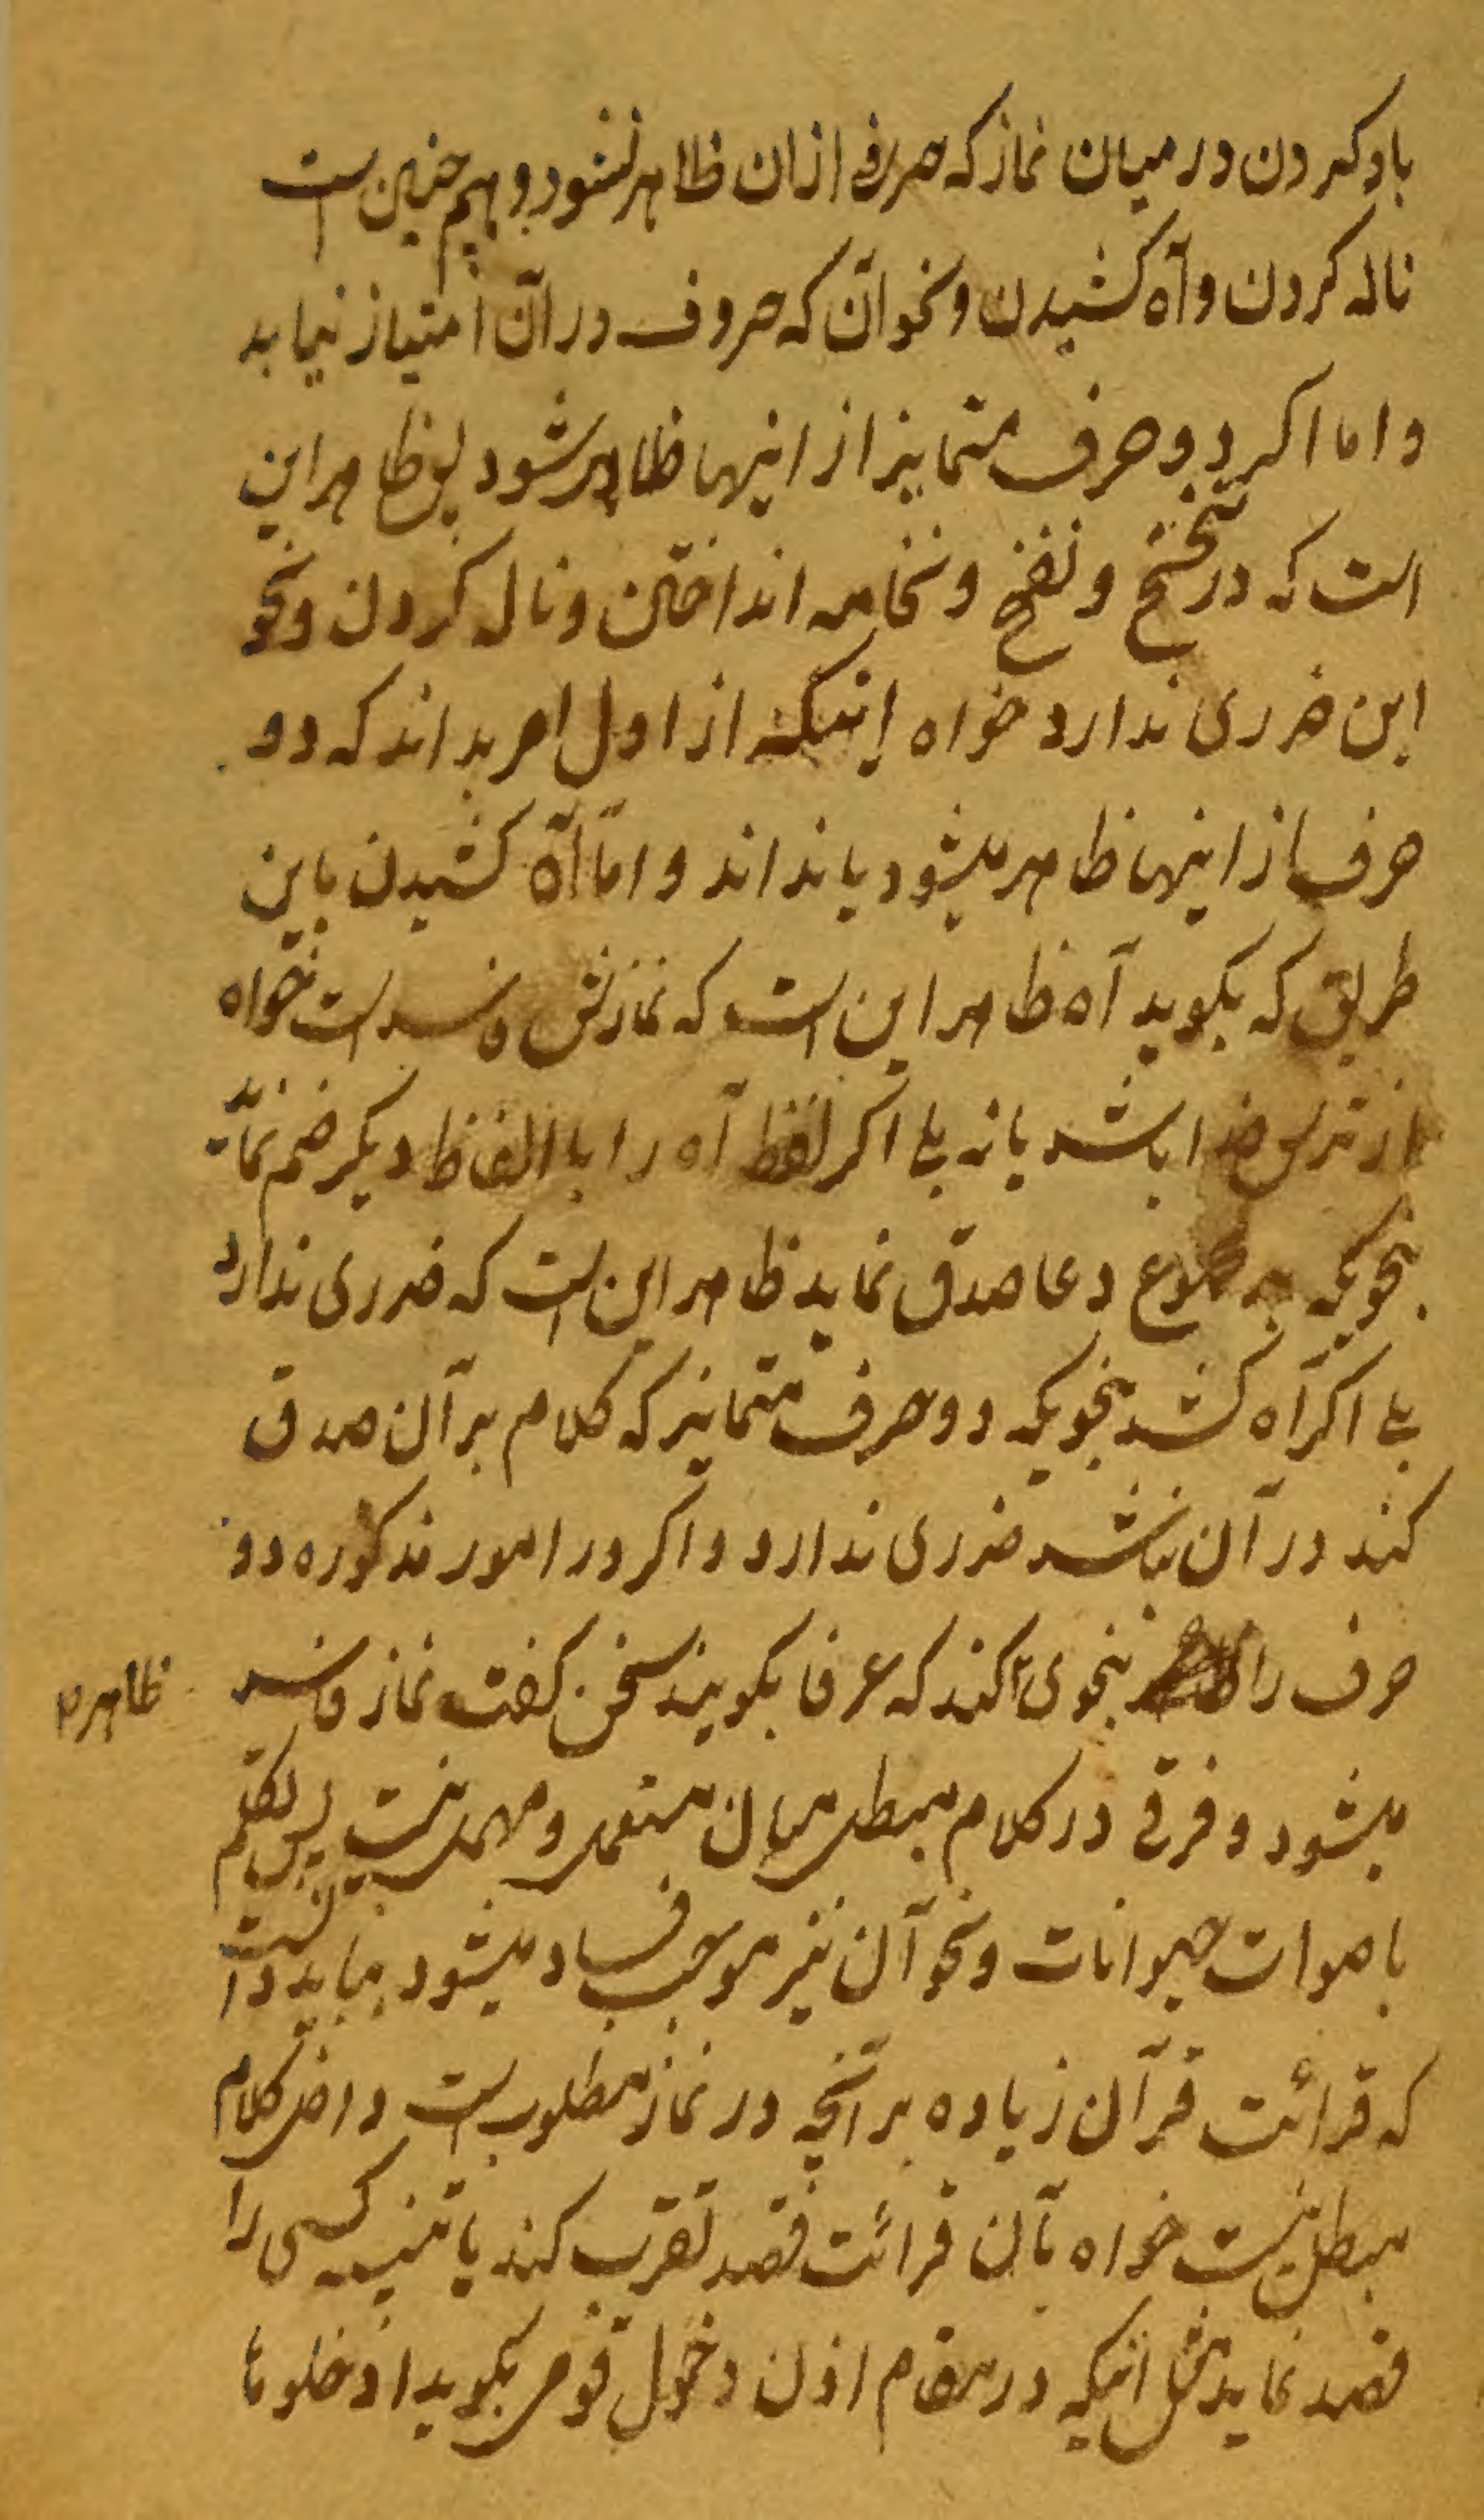 باد کردن در میان نماز که حرفی از ان ظاهر نشود و هم چنین است
ناله کردن و آه کشیدن و نحو آن که حروف در آن امتیاز نیابد
و اما اکر دو حرف متمایز از اینها ظاهر شود پس ظاهر این
است که در تنحنح و نفخ و نخامه انداختن و ناله کردن و نحو
این ضرری ندارد خواه اینکه از اول امر بداند که دو
حرف از اینها ظاهر میشود یا نداند و امّا آه کشیدن باین
طریق که بکوید آه ظاهر این است که نمازش فاسد است خواه
از ترس خدا باشد یا نه بلی اکر لفظ آه را با الفاظ دیکر ضم نماید
بنحویکه بر مجموع دعا صدق نماید ظاهر این است که ضرری ندارد
بلی اکر آه کشد بنحویکه دو حرف متمایز که کلام بر آن صدق
کند در آن نباشد ضرری ندارد و اکر در امور مذکوره دو
حرف را بنحوی کند که عرفا بکویند سخن کفت نماز فاسد
ظاهر
میشود و فرقی در کلام مبطل میان مستعمل و مهمل نیست پس تکلم
باصوات حیوانات و نحو آن نیز موجب فساد میشود بباید دانست
که قرائت قرآن زیاده بر آنچه در نماز مطلوب است داخل کلام
مبطل نیست خواه بآن قرائت قصد تقرب کند یا تنبیه کسی را
قصد نماید مثل اینکه در مقام اذن دخول قومی بکوید ادخلوها